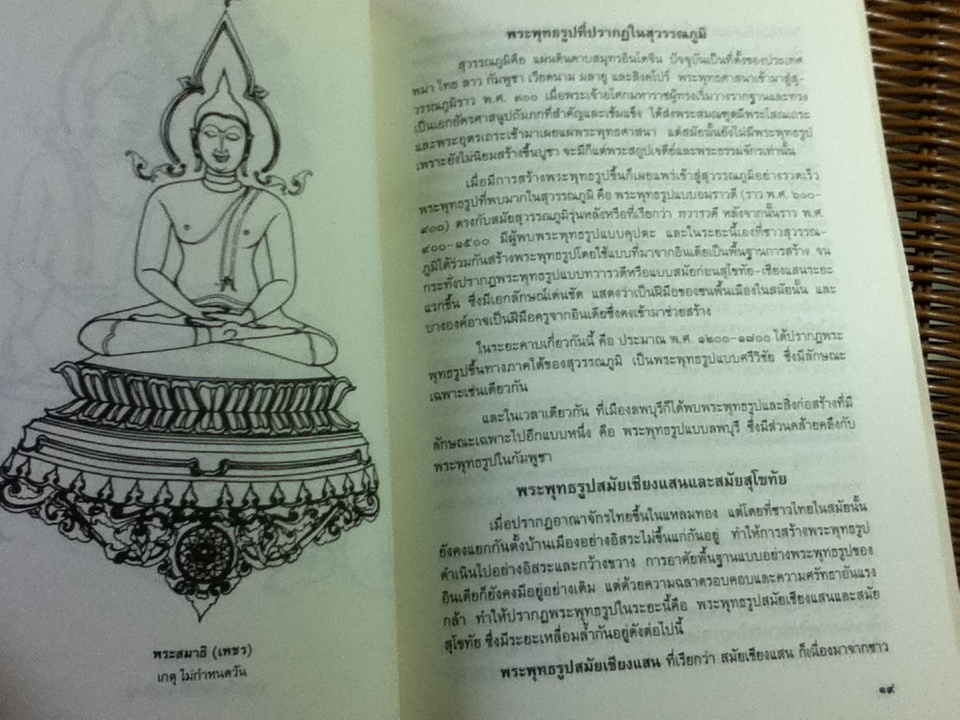 พระสมาธิ (เพชร)
เกตุ ไม่กำหนดวัน
พระพุทธรูปที่ปรากฏในสุวรรณภูมิ
สุวรรณภูมิคือ แผ่นดินคาบสมุทรอินโดจีน ปัจจุบันเป็นที่ตั้งของประเทศ
พม่า ไทย ลาว กัมพูชา เวียดนาม มลายู และสิงคโปร์ พระพุทธศาสนาเข้ามาสู่สุ-
วรรณภูมิราว พ.ศ. ๓๐๐ เมื่อพระเจ้าอโศกมหาราชผู้ทรงเริ่มวางรากฐานและทรง
เป็นเอกอัครศาสนูปถัมภกที่สำคัญและเข้มแข็ง ได้ส่งพระสมณฑูตมีพระโสณเถระ
และพระอุตรเถระเข้ามาเผยแผ่พระพุทธศาสนา แต่สมัยนั้นยังไม่มีพระพุทธรูป
เพราะยังไม่นิยมสร้างขึ้นบูชา จะมีก็แต่พระสถูปเจดีย์และพระธรรมจักรเท่านั้น
เมื่อมีการสร้างพระพุทธรูปขึ้นก็เผยแพร่เข้าสู่สุวรรณภูมิอย่างรวดเร็ว
พระพุทธรูปที่พบมากในสุวรรณภูมิ คือ พระพุทธรูปแบบอมราวดี (ราว พ.ศ. ๖๐๐-
๙๐๐) ตรงกับสมัยสุวรรณภูมิรุ่นหลังหรือที่เรียกว่า ทวารวดี หลังจากนั้นราว พ.ศ.
๙๐๐-๑๕๐๐ มีผู้พบพระพุทธรูปแบบคุปตะ และในระยะนี้เองที่ชาวสุวรรณ-
ภูมิได้ร่วมกันสร้างพระพุทธรูปโดยใช้แบบที่มาจากอินเดียเป็นพื้นฐานการสร้าง จน
กระทั่งปรากฏพระพุทธรูปแบบทวารวดีหรือแบบสมัยก่อนสุโขทัย-เชียงแสนระยะ
แรกขึ้น ซึ่งมีเอกลักษณ์เด่นชัด แสดงว่าเป็นฝีมือของชนพื้นเมืองในสมัยนั้น และ
บางองค์อาจเป็นฝีมือครูจากอินเดียซึ่งคงเข้ามาช่วยสร้าง
ในระยะคาบเกี่ยวกันนี้ คือ ประมาณ พ.ศ. ๑๒๐๐-๑๘๐๐ ได้ปรากฏพระ
พุทธรูปขึ้นทางภาคใต้ของสุวรรณภูมิ เป็นพระพุทธรูปแบบศรีวิชัย ซึ่งมีลักษณะ
เฉพาะเช่นเดียวกัน
และในเวลาเดียวกัน ที่เมืองลพบุรีก็ได้พบพระพุทธรูปและสิ่งก่อสร้างที่มี
ลักษณะเฉพาะไปอีกแบบหนึ่ง คือ พระพุทธรูปแบบลพบุรี ซึ่งมีส่วนคล้ายคลึงกับ
พระพุทธรูปในกัมพูชา
พระพุทธรูปสมัยเชียงแสนและสมัยสุโขทัย
เมื่อปรากฏอาณาจักรไทยขึ้นในแหลมทอง แต่โดยที่ชาวไทยในสมัยนั้น
ยังคงแยกกันตั้งบ้านเมืองอย่างอิสระไม่ขึ้นแก่กันอยู่ ทำให้การสร้างพระพุทธรูป
ดำเนินไปอย่างอิสระและกว้างขวาง การอาศัยพื้นฐานแบบอย่างพระพุทธรูปของ
อินเดียก็ยังคงมีอยู่อย่างเดิม แต่ด้วยความฉลาดรอบคอบและความศรัทธาอันแรง
กล้า ทำให้ปรากฏพระพุทธรูปในระยะนี้คือ พระพุทธรูปสมัยเชียงแสนและสมัย
สุโขทัย ซึ่งมีระยะเหลื่อมล้ำกันอยู่ดังต่อไปนี้
พระพุทธรูปสมัยเชียงแสน ที่เรียกว่า สมัยเชียงแสน ก็เนื่องมาจากชาว
๑๙